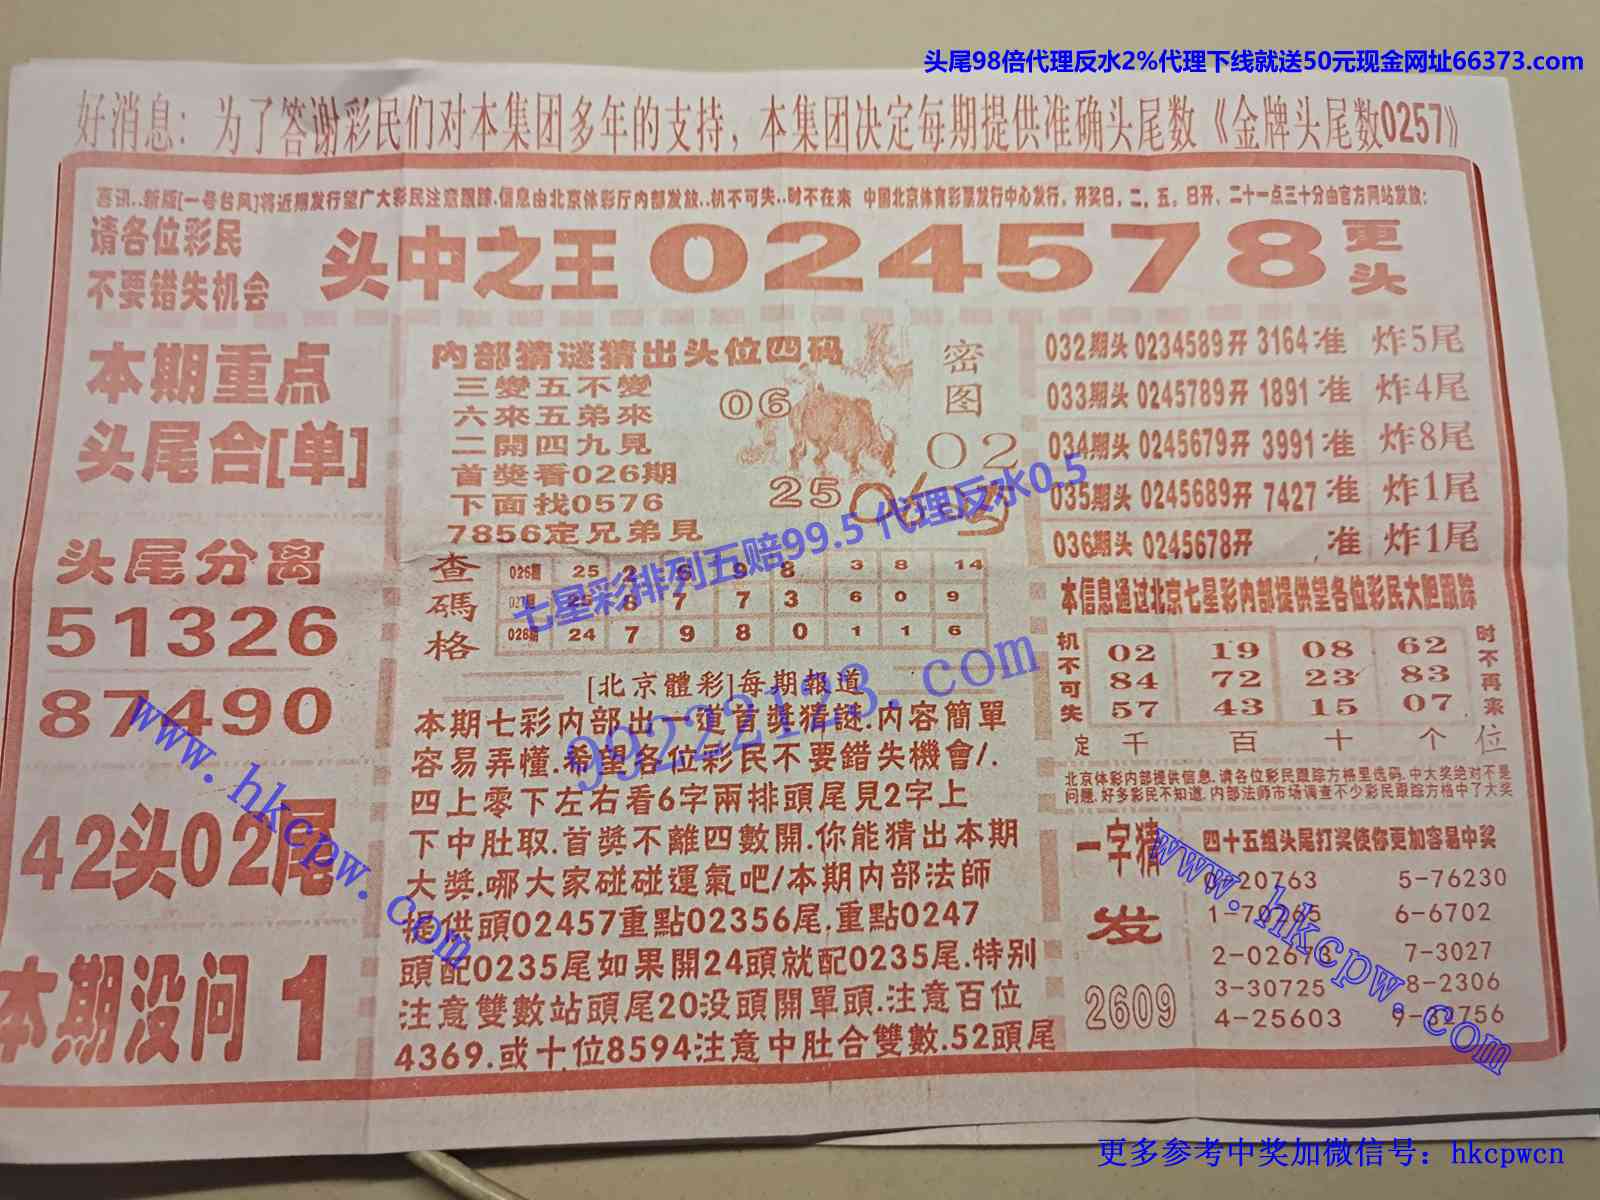 头尾98倍代理反水2%代理下线就送50元现金网址66373.com
好消息：为了答谢彩民们对本集团多年的支持，本集团决定每期提供准确头尾数《金牌头尾数0257》
喜讯..新版[一号台风]将近期发行望广大彩民注意跟踪.信息由北京体彩厅内部发放..机不可失..时不在来 中国北京体育彩票发行中心发行。开奖日，二，五。日开、二十一点三十分由官方网站发放：
请各位彩民
不要错失机会
头中之王024578更头
本期重点
头尾合[单]
头尾分离
51326
87490
42头02尾
本期没问 1
内部猜谜猜出头位四码
三變五不變
六來五弟來
二開四九見
首獎看026期
下面找0576
7856定兄弟見
密图
06
02
25
查碼格
026期 25 2 6 9 8 3 8 14
027期 25 8 7 7 3 6 0 9
028期 24 7 9 8 0 1 1 6
[北京體彩]每期報道
本期七彩内部出一道首獎猜謎.内容簡單
容易弄懂.希望各位彩民不要錯失機會/.
四上零下左右看6字兩排頭尾見2字上
下中肚取.首獎不離四數開.你能猜出本期
大獎.哪大家碰碰運氣吧/本期内部法師
提供頭02457重點02356尾.重點0247
頭配0235尾如果開24頭就配0235尾.特别
注意雙數站頭尾20没頭開單頭.注意百位
4369.或十位8594注意中肚合雙數.52頭尾
032期头 0234589开 3164 准 炸5尾
033期头 0245789开 1891 准 炸4尾
034期头 0245679开 3991 准 炸8尾
035期头 0245689开 7427 准 炸1尾
036期头 0245678开 准 炸1尾
本信息通过北京七星彩内部提供望各位彩民大胆跟踪
机不可失
02 19 08 62
84 72 23 83
57 43 15 07
时不再来
定 千 百 十 个 位
北京体彩内部提供信息.请各位彩民跟踪方格里选码.中大奖绝对不是
问题.好多彩民不知道.内部法师市场调查不少彩民跟踪方格中了大奖
一字猜
发
2609
四十五组头尾打奖使你更加容易中奖
0-20763 5-76230
1-70265 6-6702
2-02673 7-3027
3-30725 8-2306
4-25603 9-32756
七星彩排列五赔99.5 代理反水0.5
99222123.com
www.hkcpw.com
www.hkcpw.com
更多参考中奖加微信号：hkcpwcn